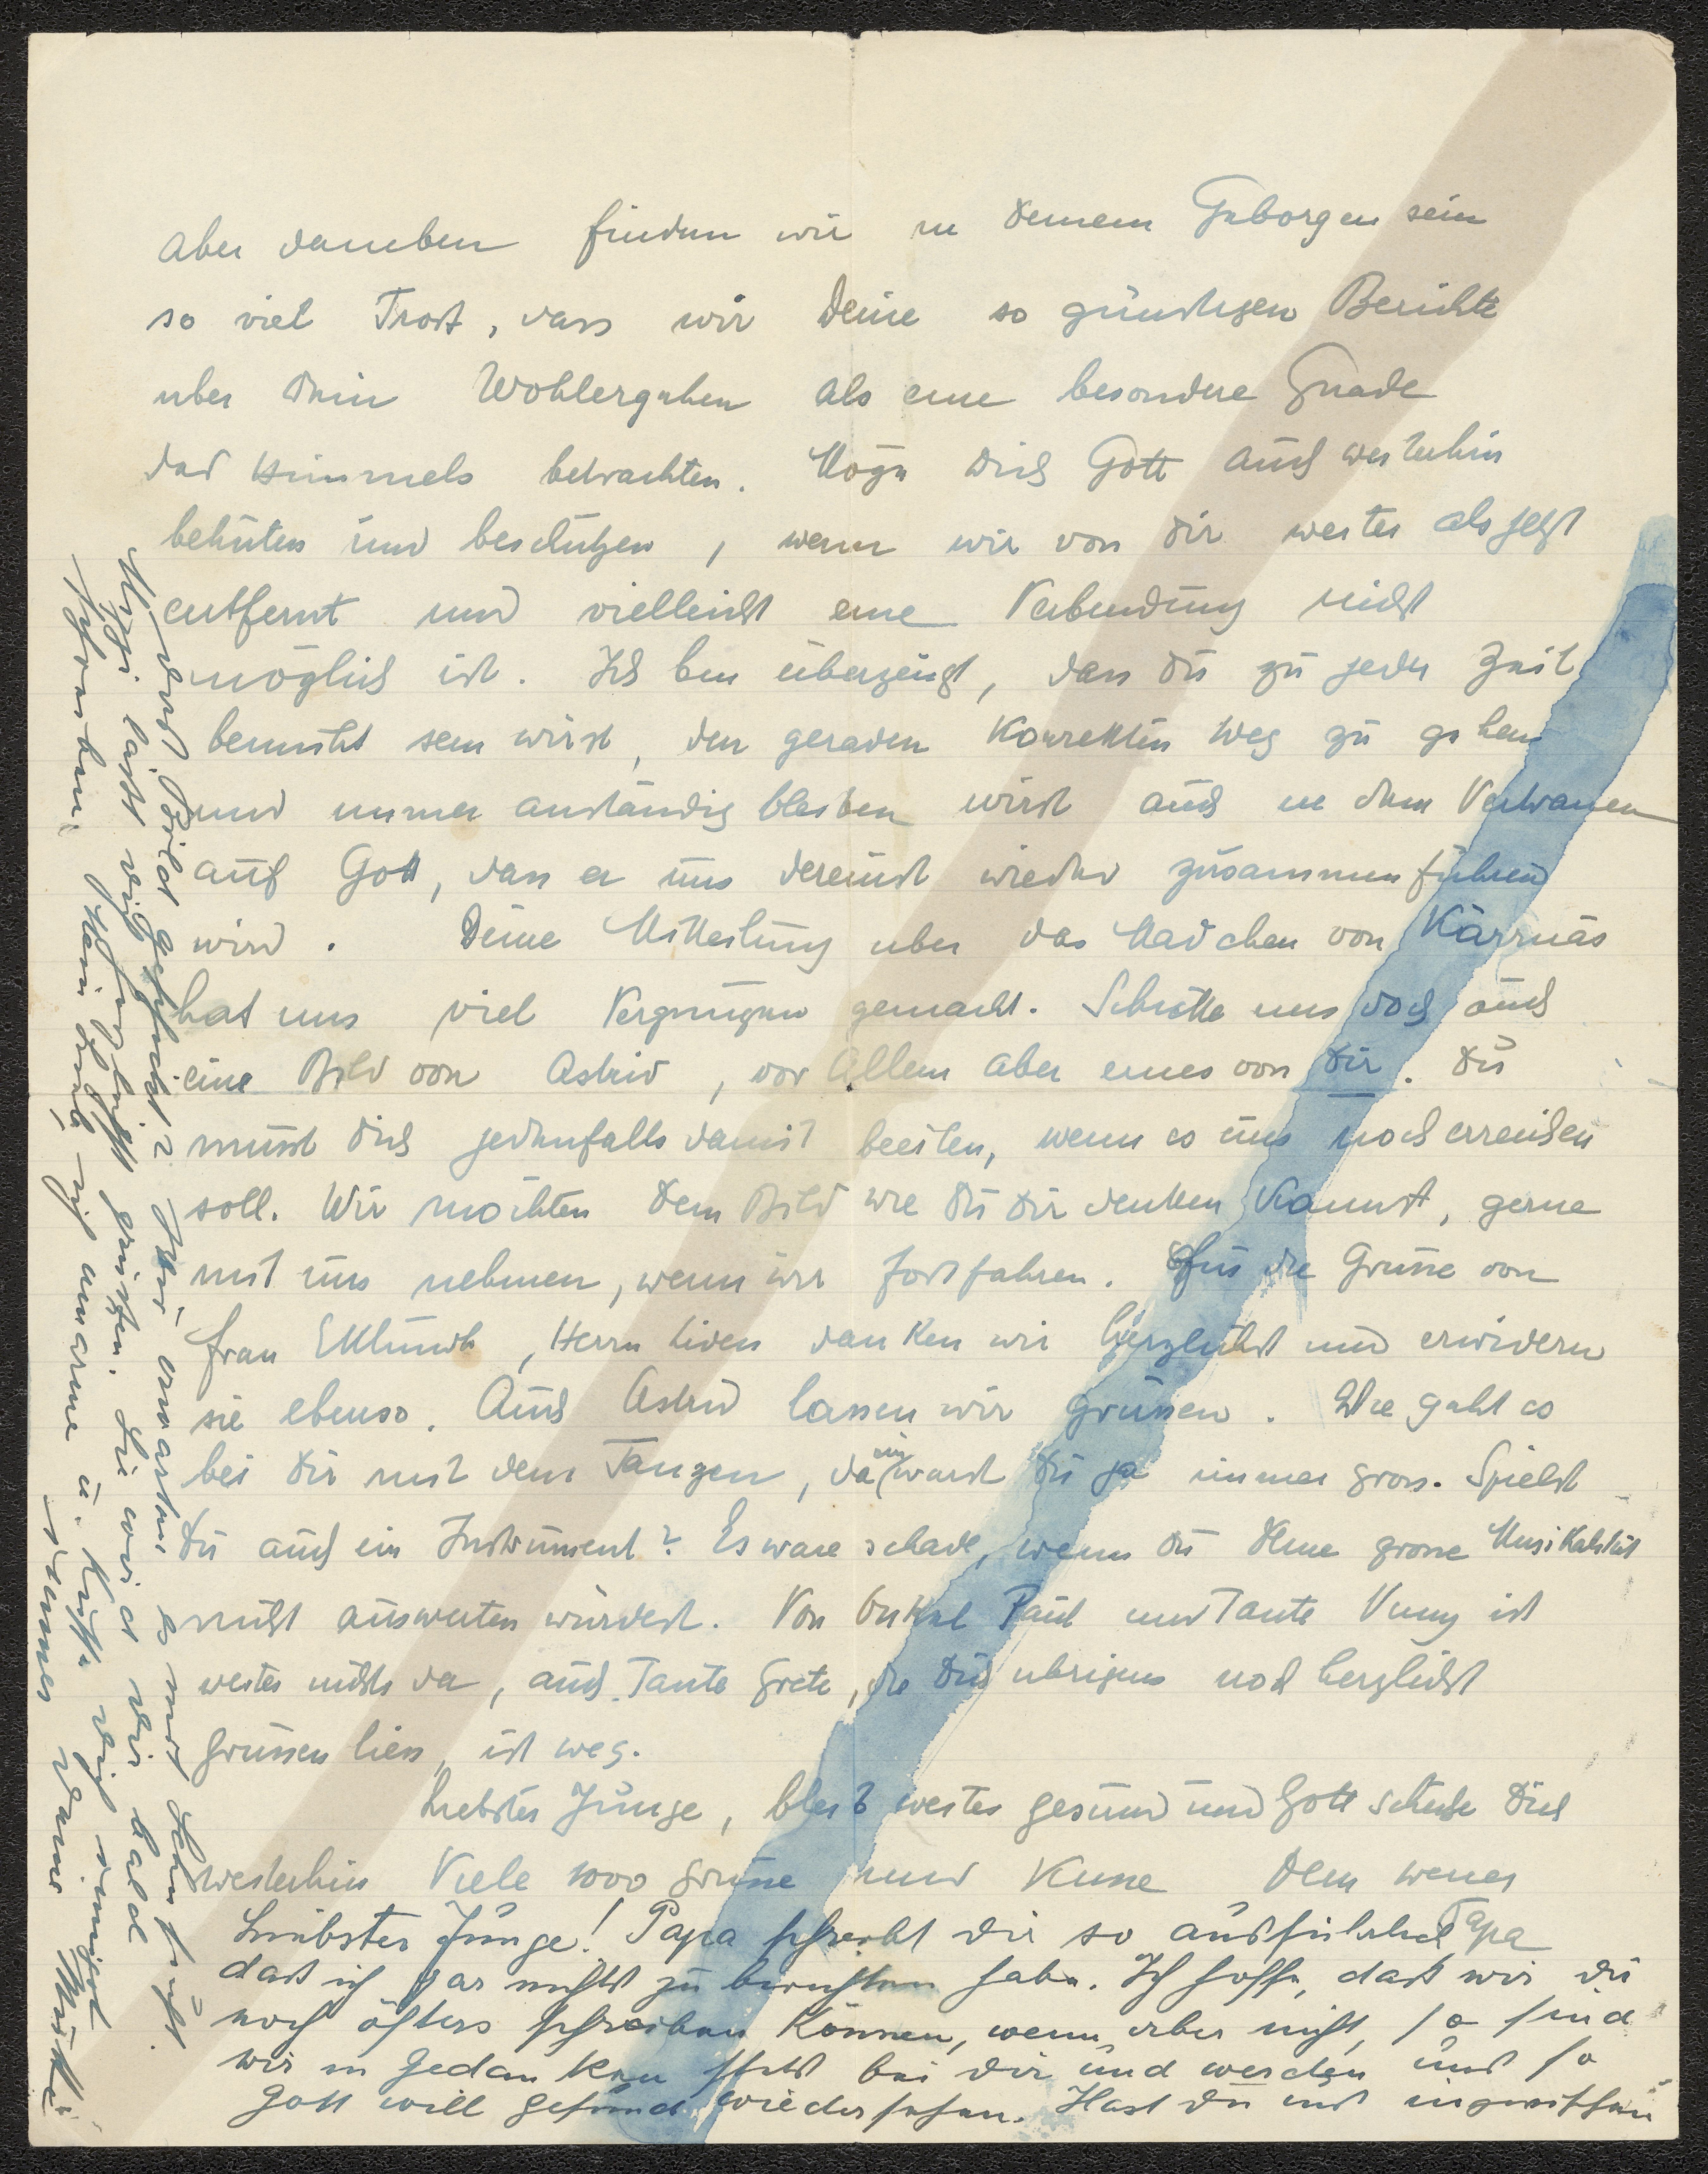 aber daneben finden wir in Deinem Geborgen sein
so viel Trost, dass wir Deine so günstigen Berichte
über Dein Wohlergehen als eine besondere Gnade
des Himmels betrachten. Möge Dich Gott auch weiterhin
behüten und beschützen, wenn wir von Dir weiter als jetzt
entfernt und vielleicht eine Verbindung nicht
möglich ist. Ich bin überzeugt, dass Du zu jeder Zeit
bemüht sein wirst, den geraden korrekten Weg zu gehen
und immer anständig bleiben wirst auch in dem Vertrauen
auf Gott, dass er uns dereinst wieder zusammenführen
wird. Deine Mitteilung über das Mädchen von Kärrnäs
hat uns viel Vergnügen gemacht. Schicke uns doch auch
eine Bild von Astrid, vor Allem aber eines von Dir. Du
musst Dich jedenfalls damit beeilen, wenn es uns noch erreichen
soll. Wir möchten Dein Bild wie Du Dir denken kannst, gerne
mit uns nehmen, wenn wir fortfahren. Für die Grüsse von
Frau Eklundh, Herrn Liven danken wir herzlichst und erwidern
sie ebenso. Auch Astrid lassen wir grüssen. Wie geht es
bei Dir mit dem Tanzen, da warst Du ja immer gross. Spielst
Du auch ein Instrument? Es wäre schade, wenn Du Deine grosse Musikalität
nicht auswerten würdest. Von Onkel Paul und Tante Vuny ist
weiter nichts da, auch Tante Grete, die Dich übrigens noch herzlichst
grüssen liess, ist weg.
Liebster Junge, bleib weiter gesund und Gott schütze Dich
weiterhin Viele 1000 Grüsse und Küsse Dein
Papa
Liebster Junge! Papa schreibt dir so ausführlich
dass ich gar nichts zu berichten habe. Ich hoffe, dass wir dir
noch öfters schreiben können, wenn aber nicht, so sind
wir in Gedanken stets bei dir und werden uns so
Gott will gesund wiedersehen. Hast du uns inzwischen
das Bild geschickt? Wir erwarten es mit Sehnsucht.
lässt dich herzlichst grüssen. Sie wird dir bald
schreiben. Mein umarme u. küsse dich innigst
Deine Mutti